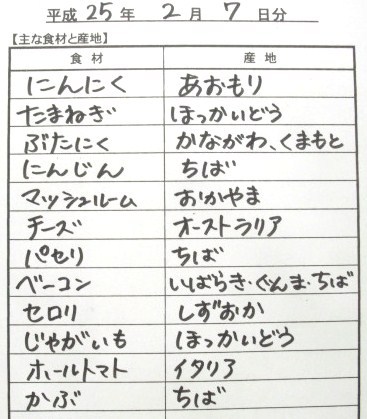 平成 25 年 2 月 7 日分
【主な食材と産地】
食材 産地
にんにく あおもり
たまねぎ ほっかいどう
ぶたにく かながわ、くまもと
にんじん ちば
マッシュルーム おかやま
チーズ オーストラリア
パセリ ちば
ベーコン いばらき・ぐんま・ちば
セロリ しずおか
じゃがいも ほっかいどう
ホールトマト イタリア
かぶ ちば